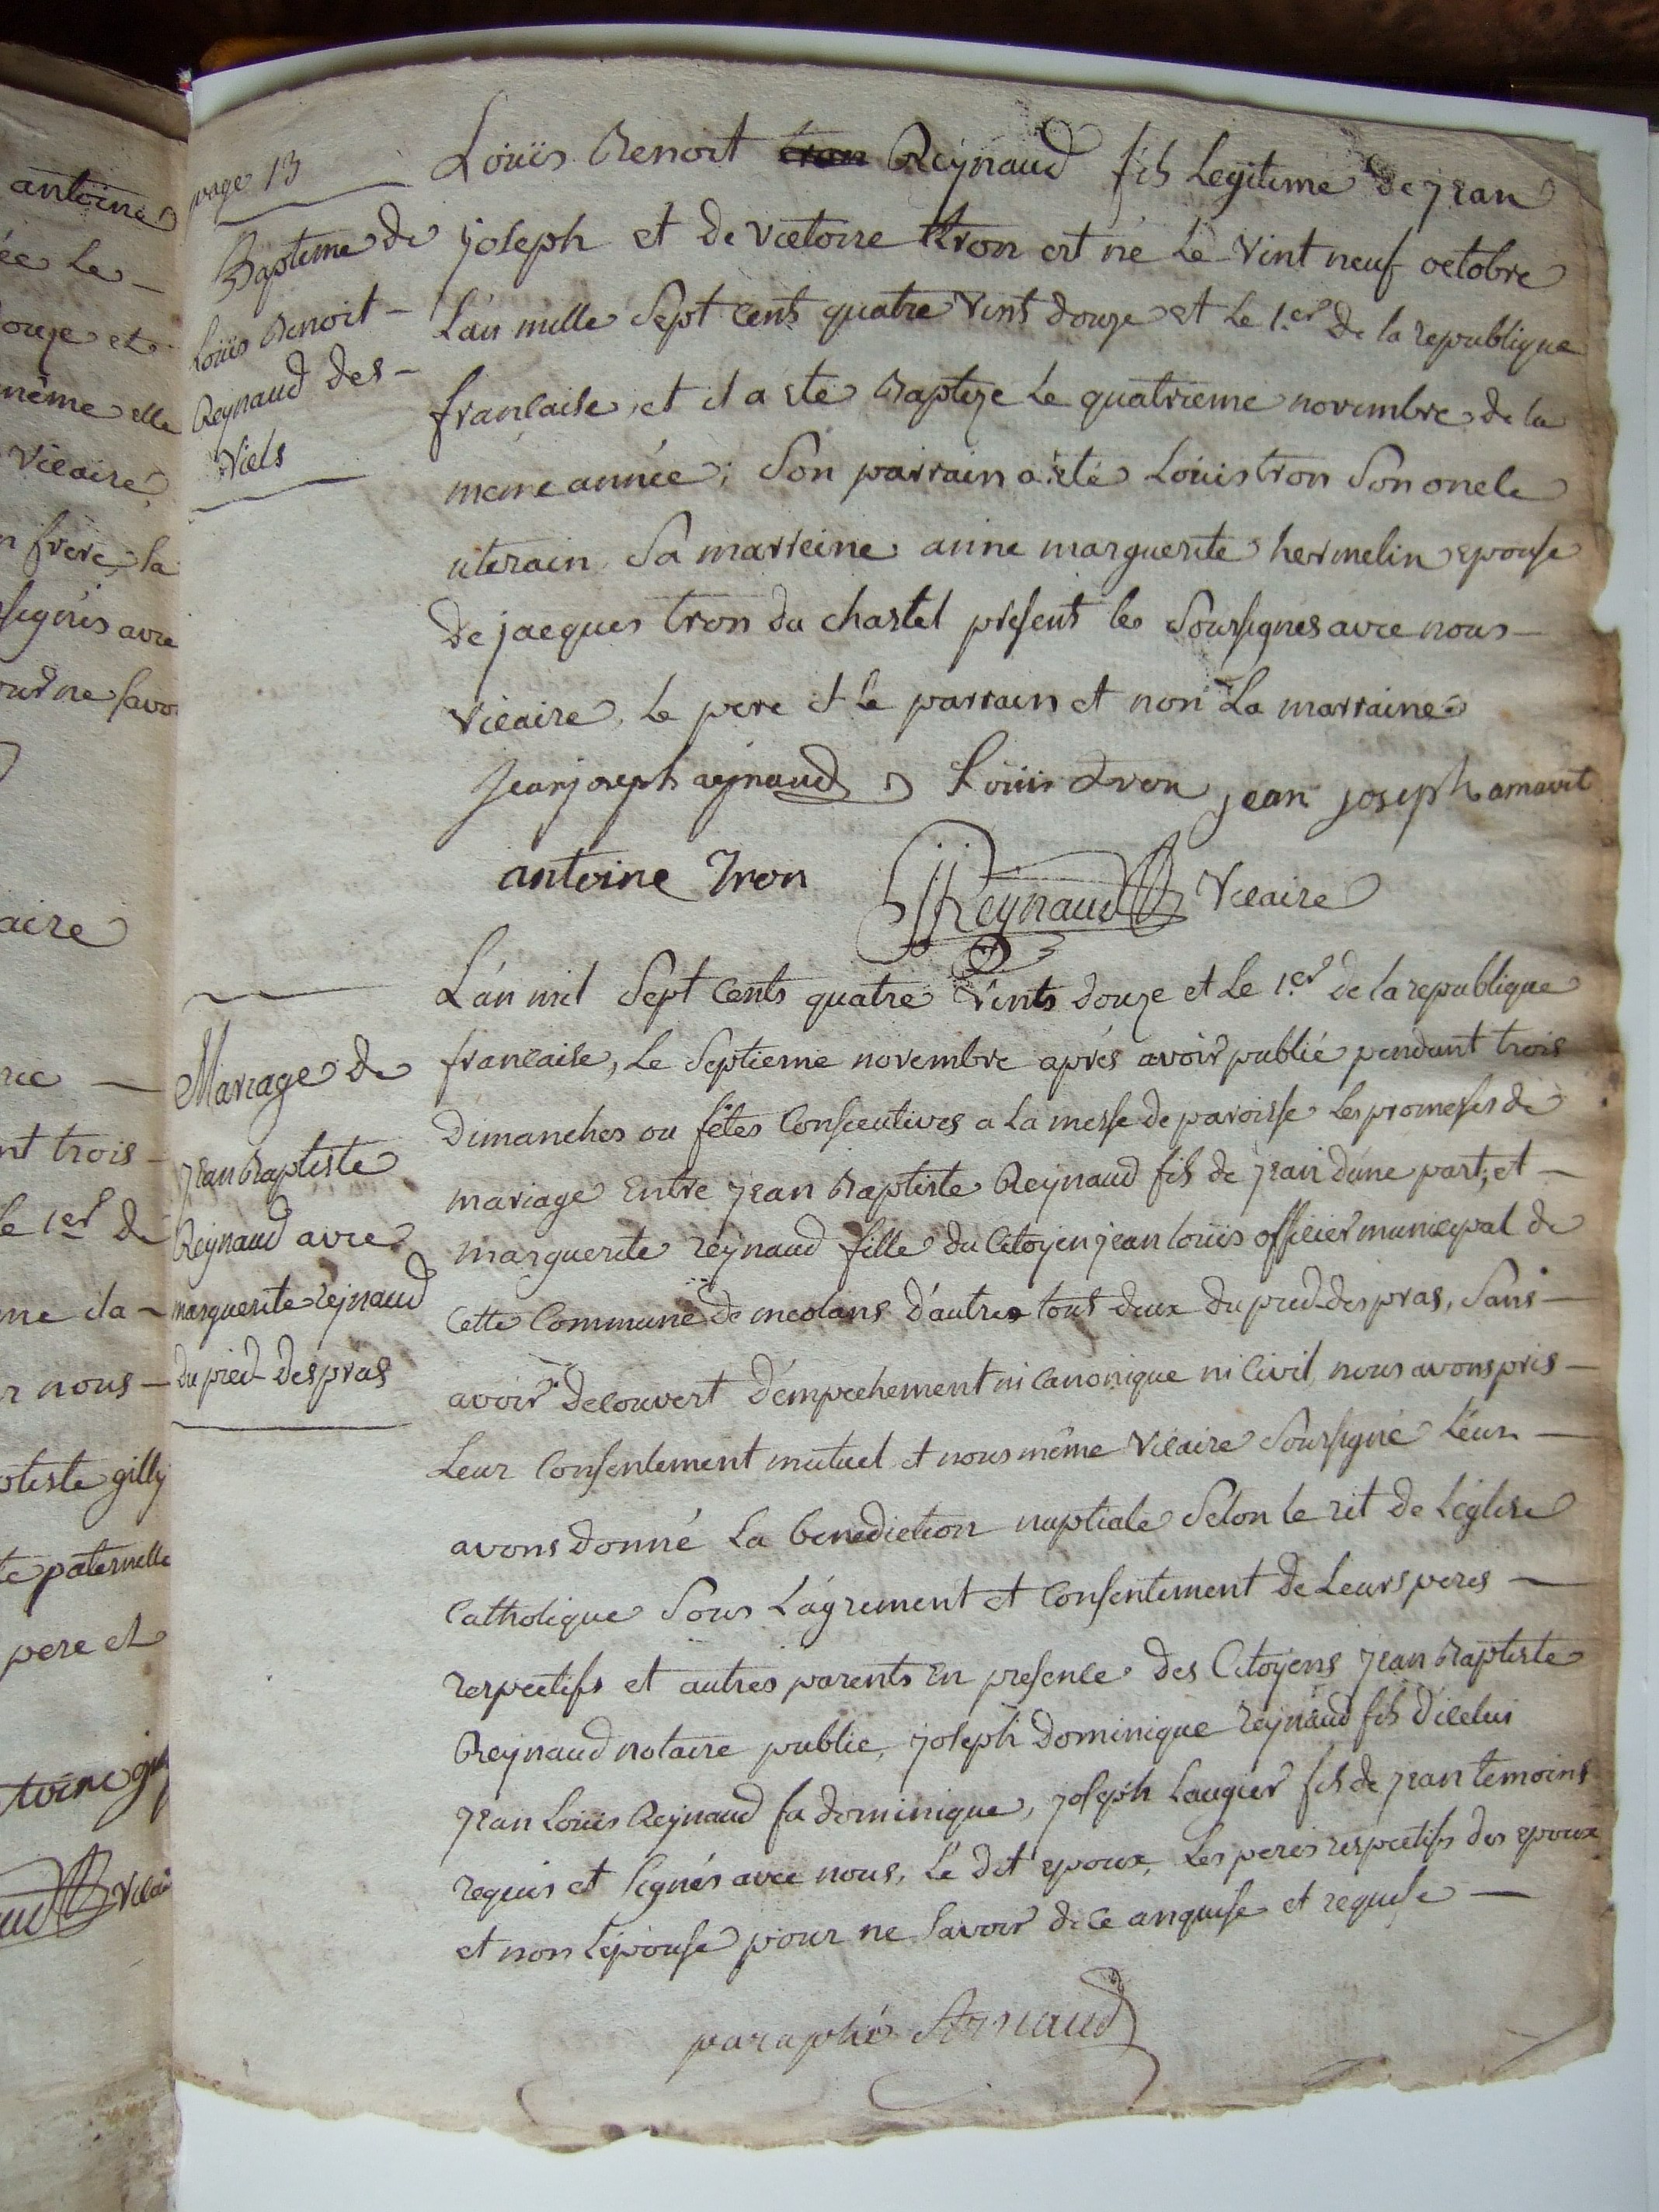 page 13
Bapteme de
Louis Benoit -
Reynaud des -
Viels
Louis Benoit tron Reynaud fils Legitime de jean
joseph et de victoire tron est né Le Vint neuf octobre
L'an mille Sept Cents quatre Vint douze et Le 1.er De la republique
francaise, et il a ete Baptize Le quatrieme novembre de la
meme année; Son parrain a été Louis tron Son oncle
uterain Sa marreine anne marguerite hermelin epouse
De jacques tron du chastel présents les Soussignés avec nous -
Vicaire, le pere et le parrain et non La marraine
Jean joseph reÿnaud Louis tron jean joseph arnaud
antoine Tron JJReynaud Vicaire
Mariage de
jean Baptiste
Reynaud avec
marguerite reynaud
du pied-des pras
L'an mil Sept Cents quatre Vints douze et Le 1.er de la republique
francaise, Le Septieme novembre aprés avoir publié pendant trois
Dimanches ou fêtes Consecutives a La messe de paroisse Les promesses de
mariage Entre jean Baptiste Reynaud fils de jean d'une part; et -
marguerite reynaud fille du Citoyen jean louis officier municipal de
Cette Commune de meolans d'autre tous deux du pied-des pras, Sans -
avoir decouvert d'empechement ni Canonique ni Civil, nous avons pris -
Leur Consentement mutuel et nous même Vicaire Soussigné Leur -
avons donné La benediction nuptiale Selon le rit de L'église
Catholique Sous L'agrement et Consentement de Leurs peres -
respectifs et autres parents En presence des Citoyens jean Baptiste
Reynaud notaire public, joseph Dominique reynaud fils d'icelui
jean Louis Reynaud fu dominique, joseph Laugier fils de jean temoins
requis et Signés avec nous, Le dit epoux, Les peres respectifs des epoux
et non L'epouse pour ne Savoir de ce anquise et requise -
paraphé Arnaud
antoine
ée Le -
douze et
même elle
Vicaire
n frere, la
signés avec
aire
nt trois -
Le 1er de
me il a -
r nous -
ptiste gilly
te paternelle
pere et
toine
Vicai